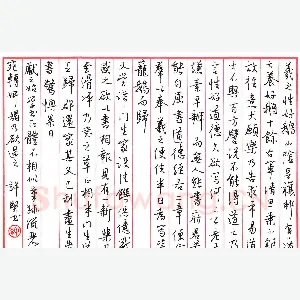 羲之性好鵝山陰曇禳村有一道
士養好鵝十餘右軍清旦乘小艇
故往意大願樂乃告求市易道
士不與百方譬說不能得道士乃
言性好道德久欲寫河上公老子
縑素早辦而無人能書府君若
能自屈書道德經各兩章便合
群以奉羲之便住半日為寫畢
籠鵝而歸
又嘗詣門生家設佳饌供億甚盛
感之欲以書相報見有一新棐几
至滑淨乃書之草正相半門生送
王歸郡還家其父已刮盡生失
書驚懊累日
獻之始學父書正體不相似筆跡流懌
宛轉妍媚乃欲過之 許